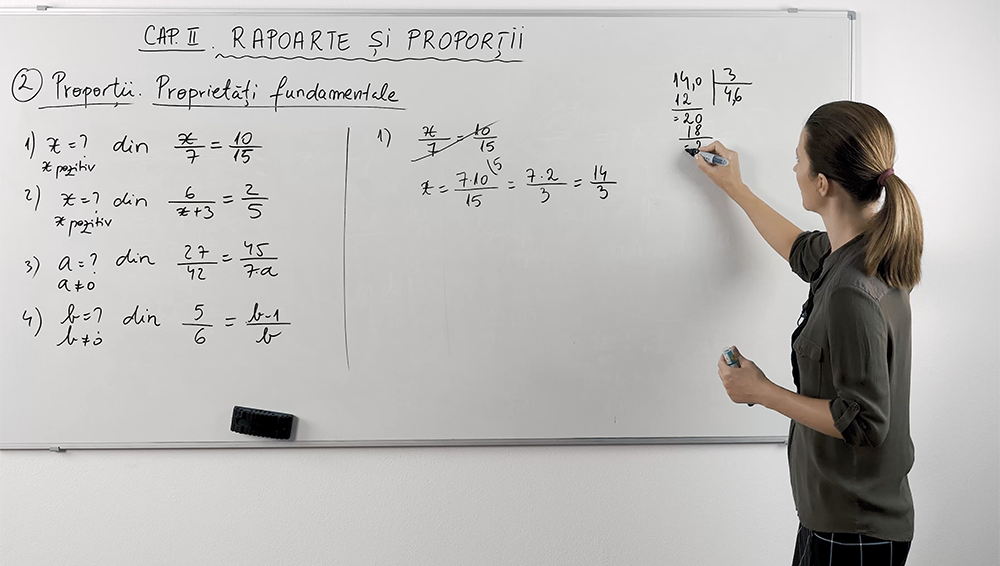 CAP. II. RAPOARTE ȘI PROPORȚII
2 Proporții. Proprietăți fundamentale
1) x = ? din x/7 = 10/15
x pozitiv
2) x = ? din 6/x+3 = 2/5
x pozitiv
3) a = ? din 27/42 = 45/7·a
a ≠ 0
4) b = ? din 5/6 = b-1/b
b ≠ 0
1) x/7 = 10/15
x = 7·10/15 (5 = 7·2/3 = 14/3
14,0 | 3
12 | 4,6
= 20
18
= 2